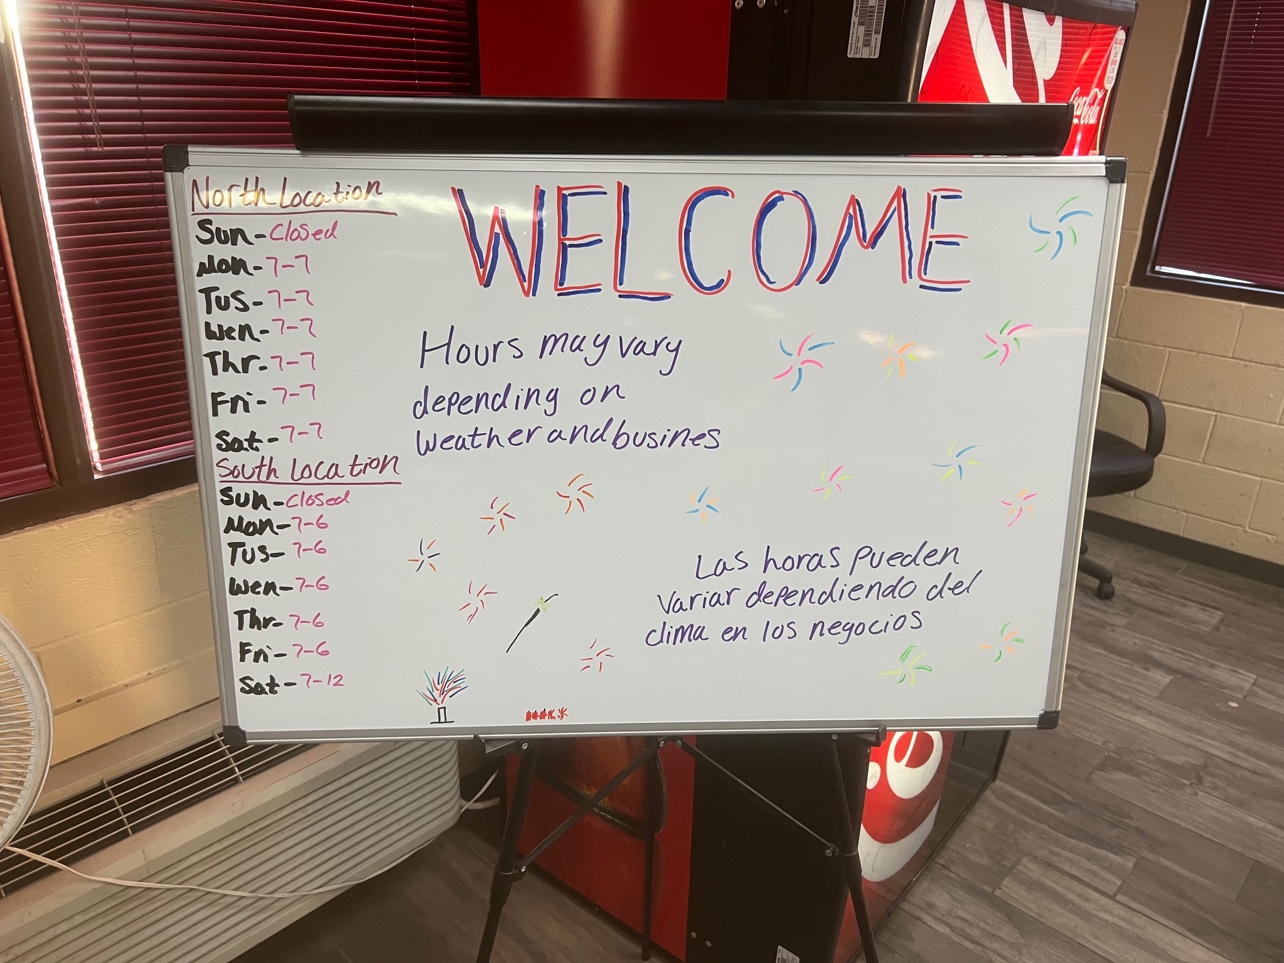 North Location
Sun-Closed
Mon-7-7
Tus-7-7
Wen-7-7
Thr-7-7
Fri-7-7
Sat-7-7
South Location
Sun-Closed
Mon-7-6
Tus-7-6
Wen-7-6
Thr-7-6
Fri-7-6
Sat-7-12
WELCOME
Hours may vary
depending on
weather and busines
Las horas pueden
variar dependiendo del
clima en los negocios
Coca-Cola